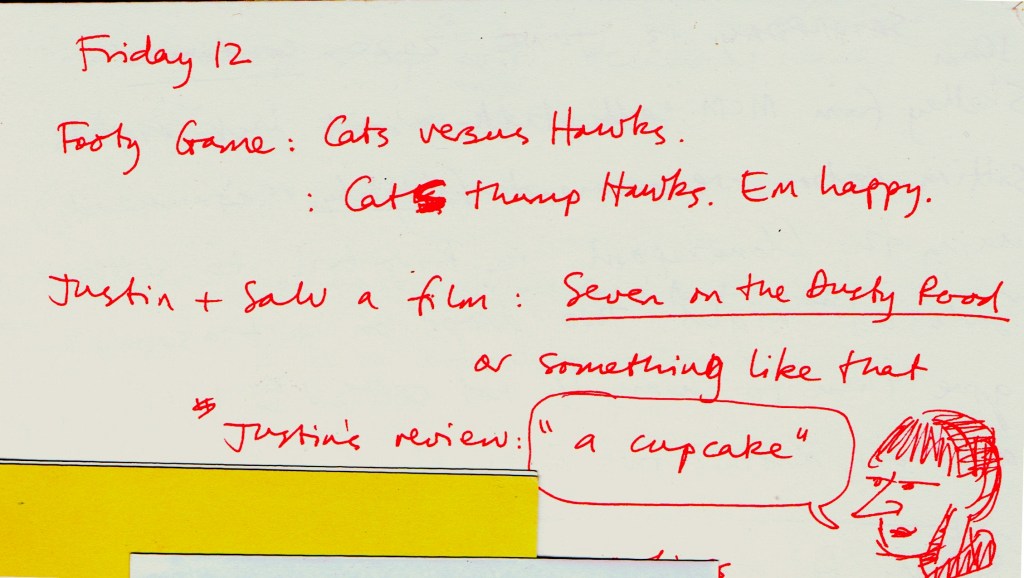 Friday 12
Footy Game: Cats versus Hawks.
: Cats thump Hawks. Em happy.
Justin + Sal a film: Seven on the Dusty Road
or something like that
* Justin's review: "a cupcake"